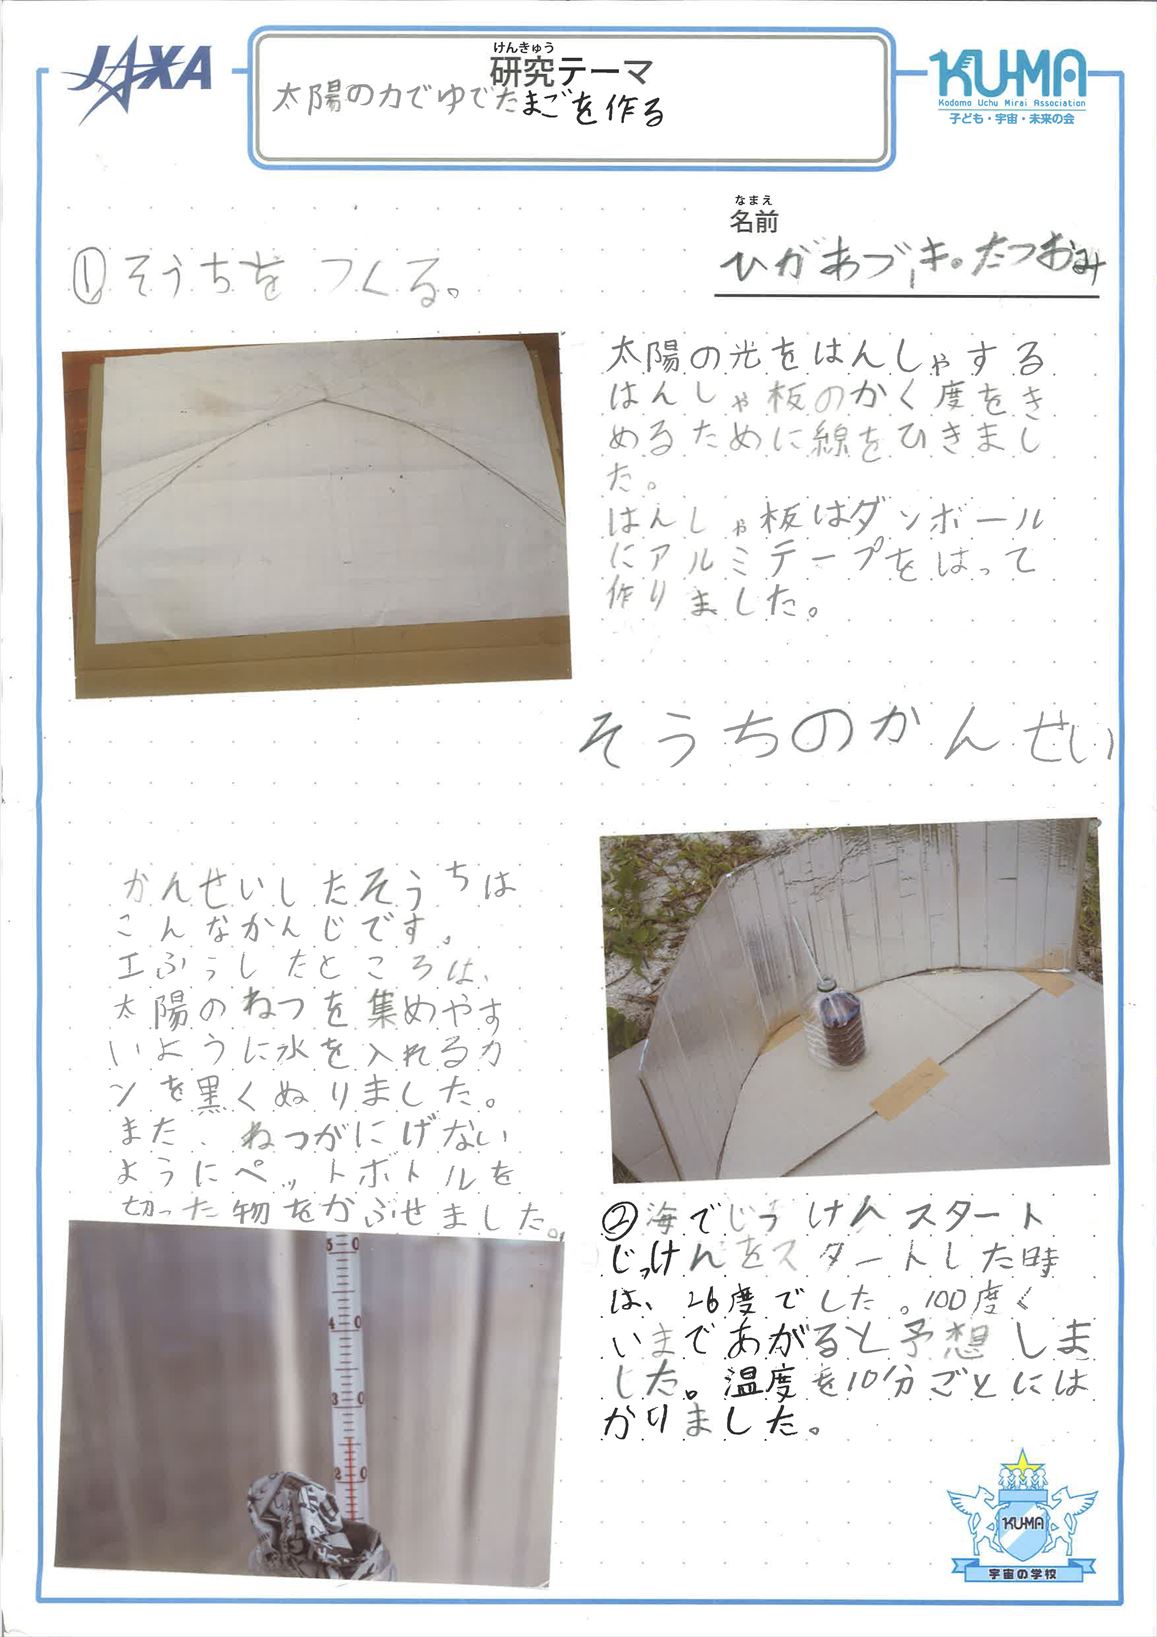 JAXA
けんきゅう
研究テーマ
太陽の力でゆでたまごを作る
KUMA
Kodomo Uchu Mirai Association
子ども・宇宙・未来の会
なまえ
名前
ひがあづき。たつおみ
①そうちをつくる。
太陽の光をはんしゃする
はんしゃ板のかく度をき
めるために線をひきまし
た。
はんしゃ板はダンボール
にアルミテープをはって
作りました。
そうちのかんせい
かんせいしたそうちは
こんなかんじです。
工ふうしたところは、
太陽のねつを集めやす
いように水を入れるカ
ンを黒くぬりました。
また、ねつがにげない
ようにペットボトルを
切った物をかぶせました。
②海でじっけんスタート
じっけんをスタートした時
は、26度でした。100度く
いまであがると予想しま
した。温度を10分ごとには
かりました。
50
40
30
20
KUMA
宇宙の学校